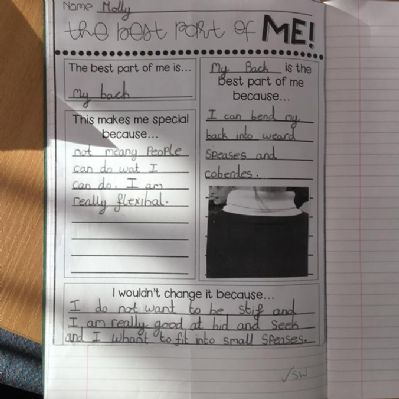 Name Molly
the best part of ME!
The best part of me is...
My back
This makes me special
because...
not meany People
can do wat I
can do. I am
really flexibal.
My Back is the
Best part of me
because...
I can bend my
back into weard
Speases and
coberdes.
I wouldn't change it because...
I do not want to be stif and
I am really good at hid and seek
and I whant to fit into small Speases.